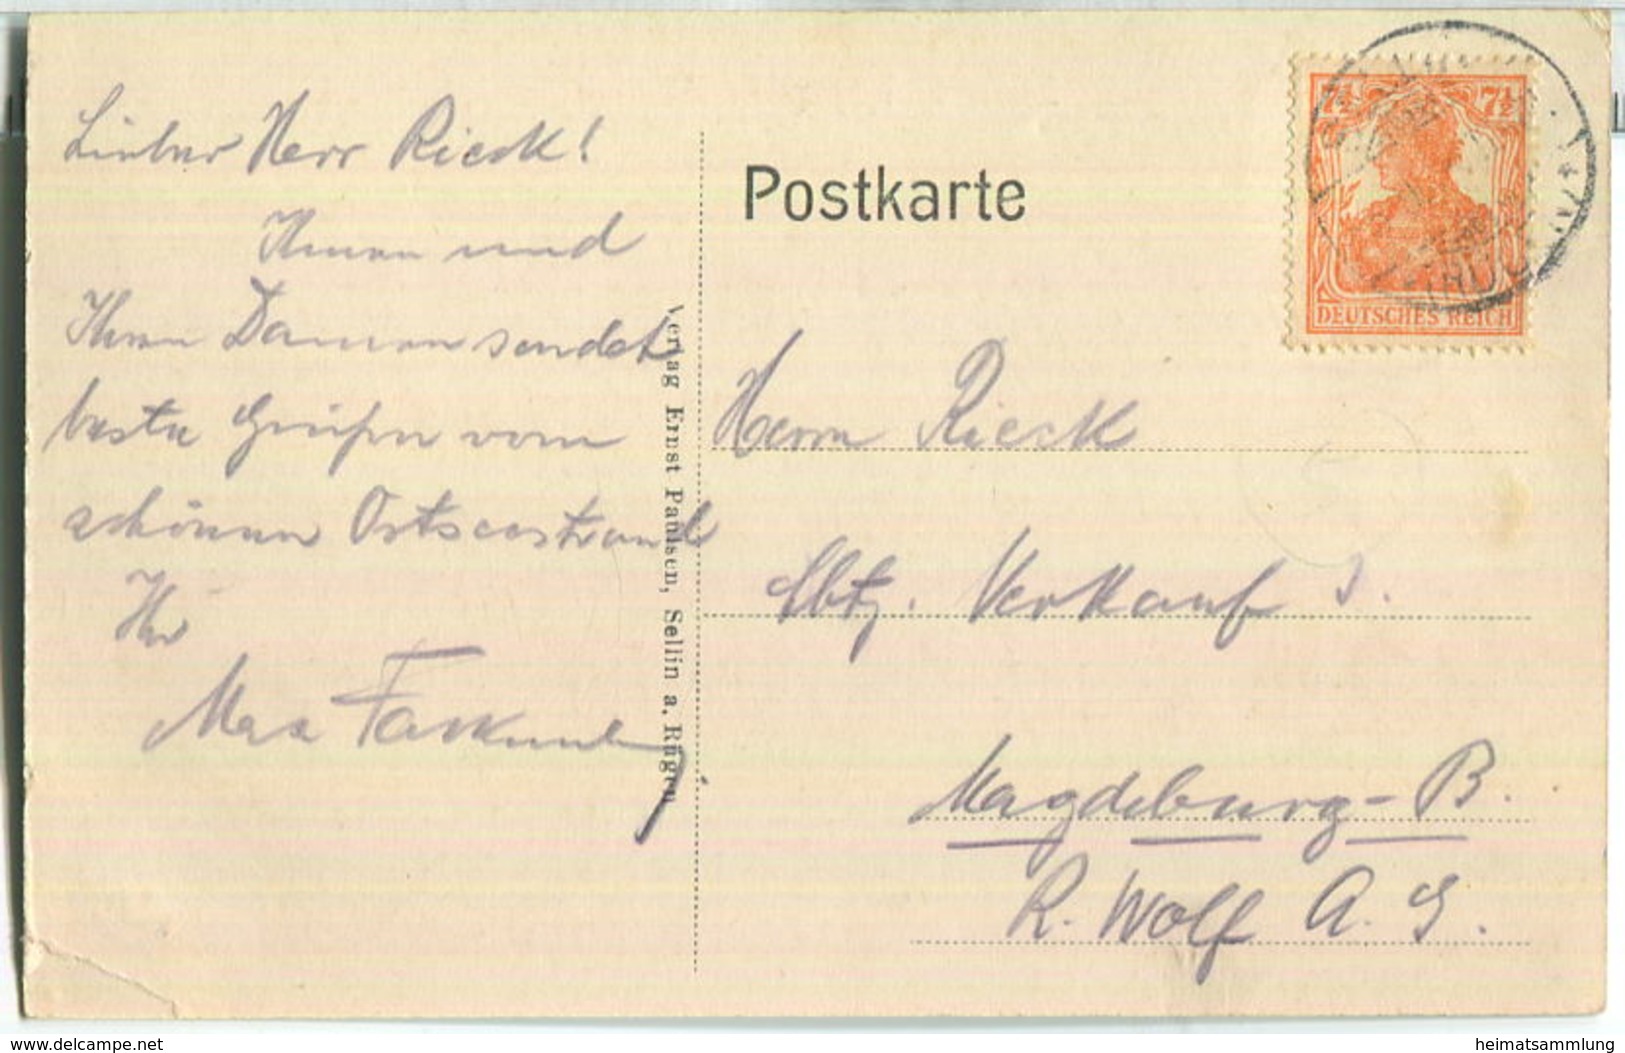 Lieber Herr Rieck!
Ihnen und
Ihren Damen sendet
beste Grüße vom
schönen Ostseestrand
Ihr
Max
Verlag Ernst Paulsen, Sellin a. Rügen
Postkarte
7½ 7½
DEUTSCHES REICH
Herrn Rieck
Abtg. Verkauf I.
Magdeburg-B.
R. Wolf A. G.
www.delcampe.net
heimatsammlung